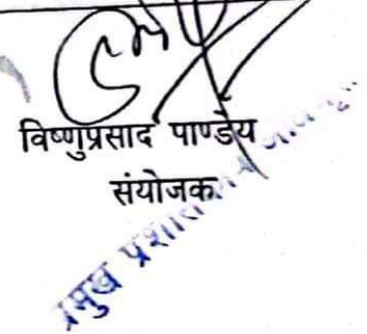 विष्णुप्रसाद पाण्डेय
संयोजक
प्रमुख